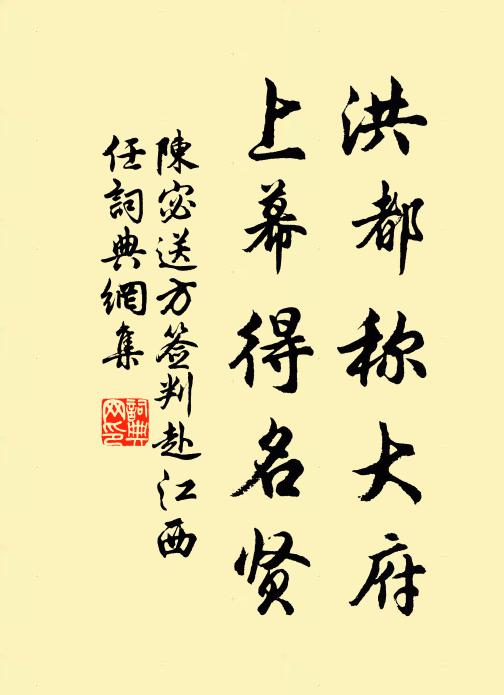 洪都称大府
上幕得名贤
陳宓送方签判赴江西
任詞典網集
詞典
网印